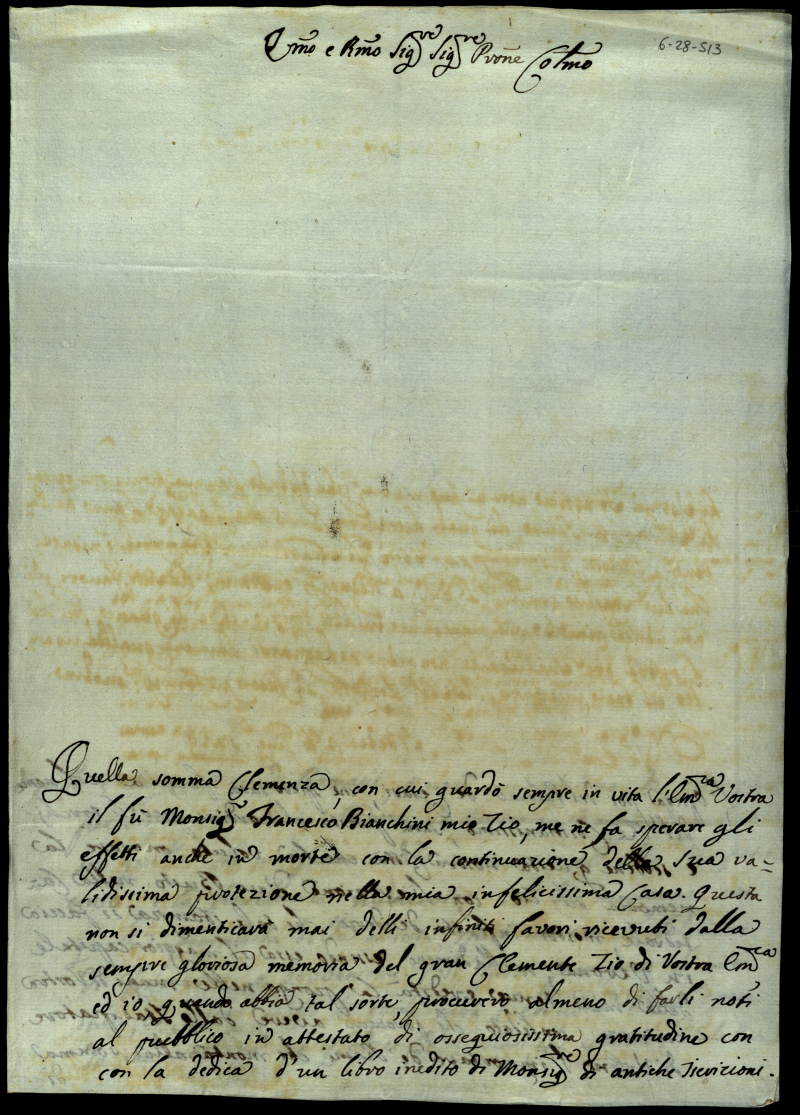 Emo e Rmo Sigre Sigre Prone Colmo
6-28-513
Quella somma Clemenza, con cui guardò sempre in vita l'Emza Vostra
il fù Monsigr Francesco Bianchini mio Zio, me ne fa sperare gli
effetti anche in morte con la continuazione della sua va=
lidissima protezione nella mia infelicissima Casa. Questa
non si dimenticarà mai delli infiniti favori ricevuti dalla
sempre gloriosa memoria del gran Clemente Zio di Vostra Emza
ed io quando abbia tal sorte, procurerò almeno di farli noti
al pubblico in attestato di ossequiosissima gratitudine con
con la dedica d'un libro inedito di Monsigre di antiche Iscrizioni.